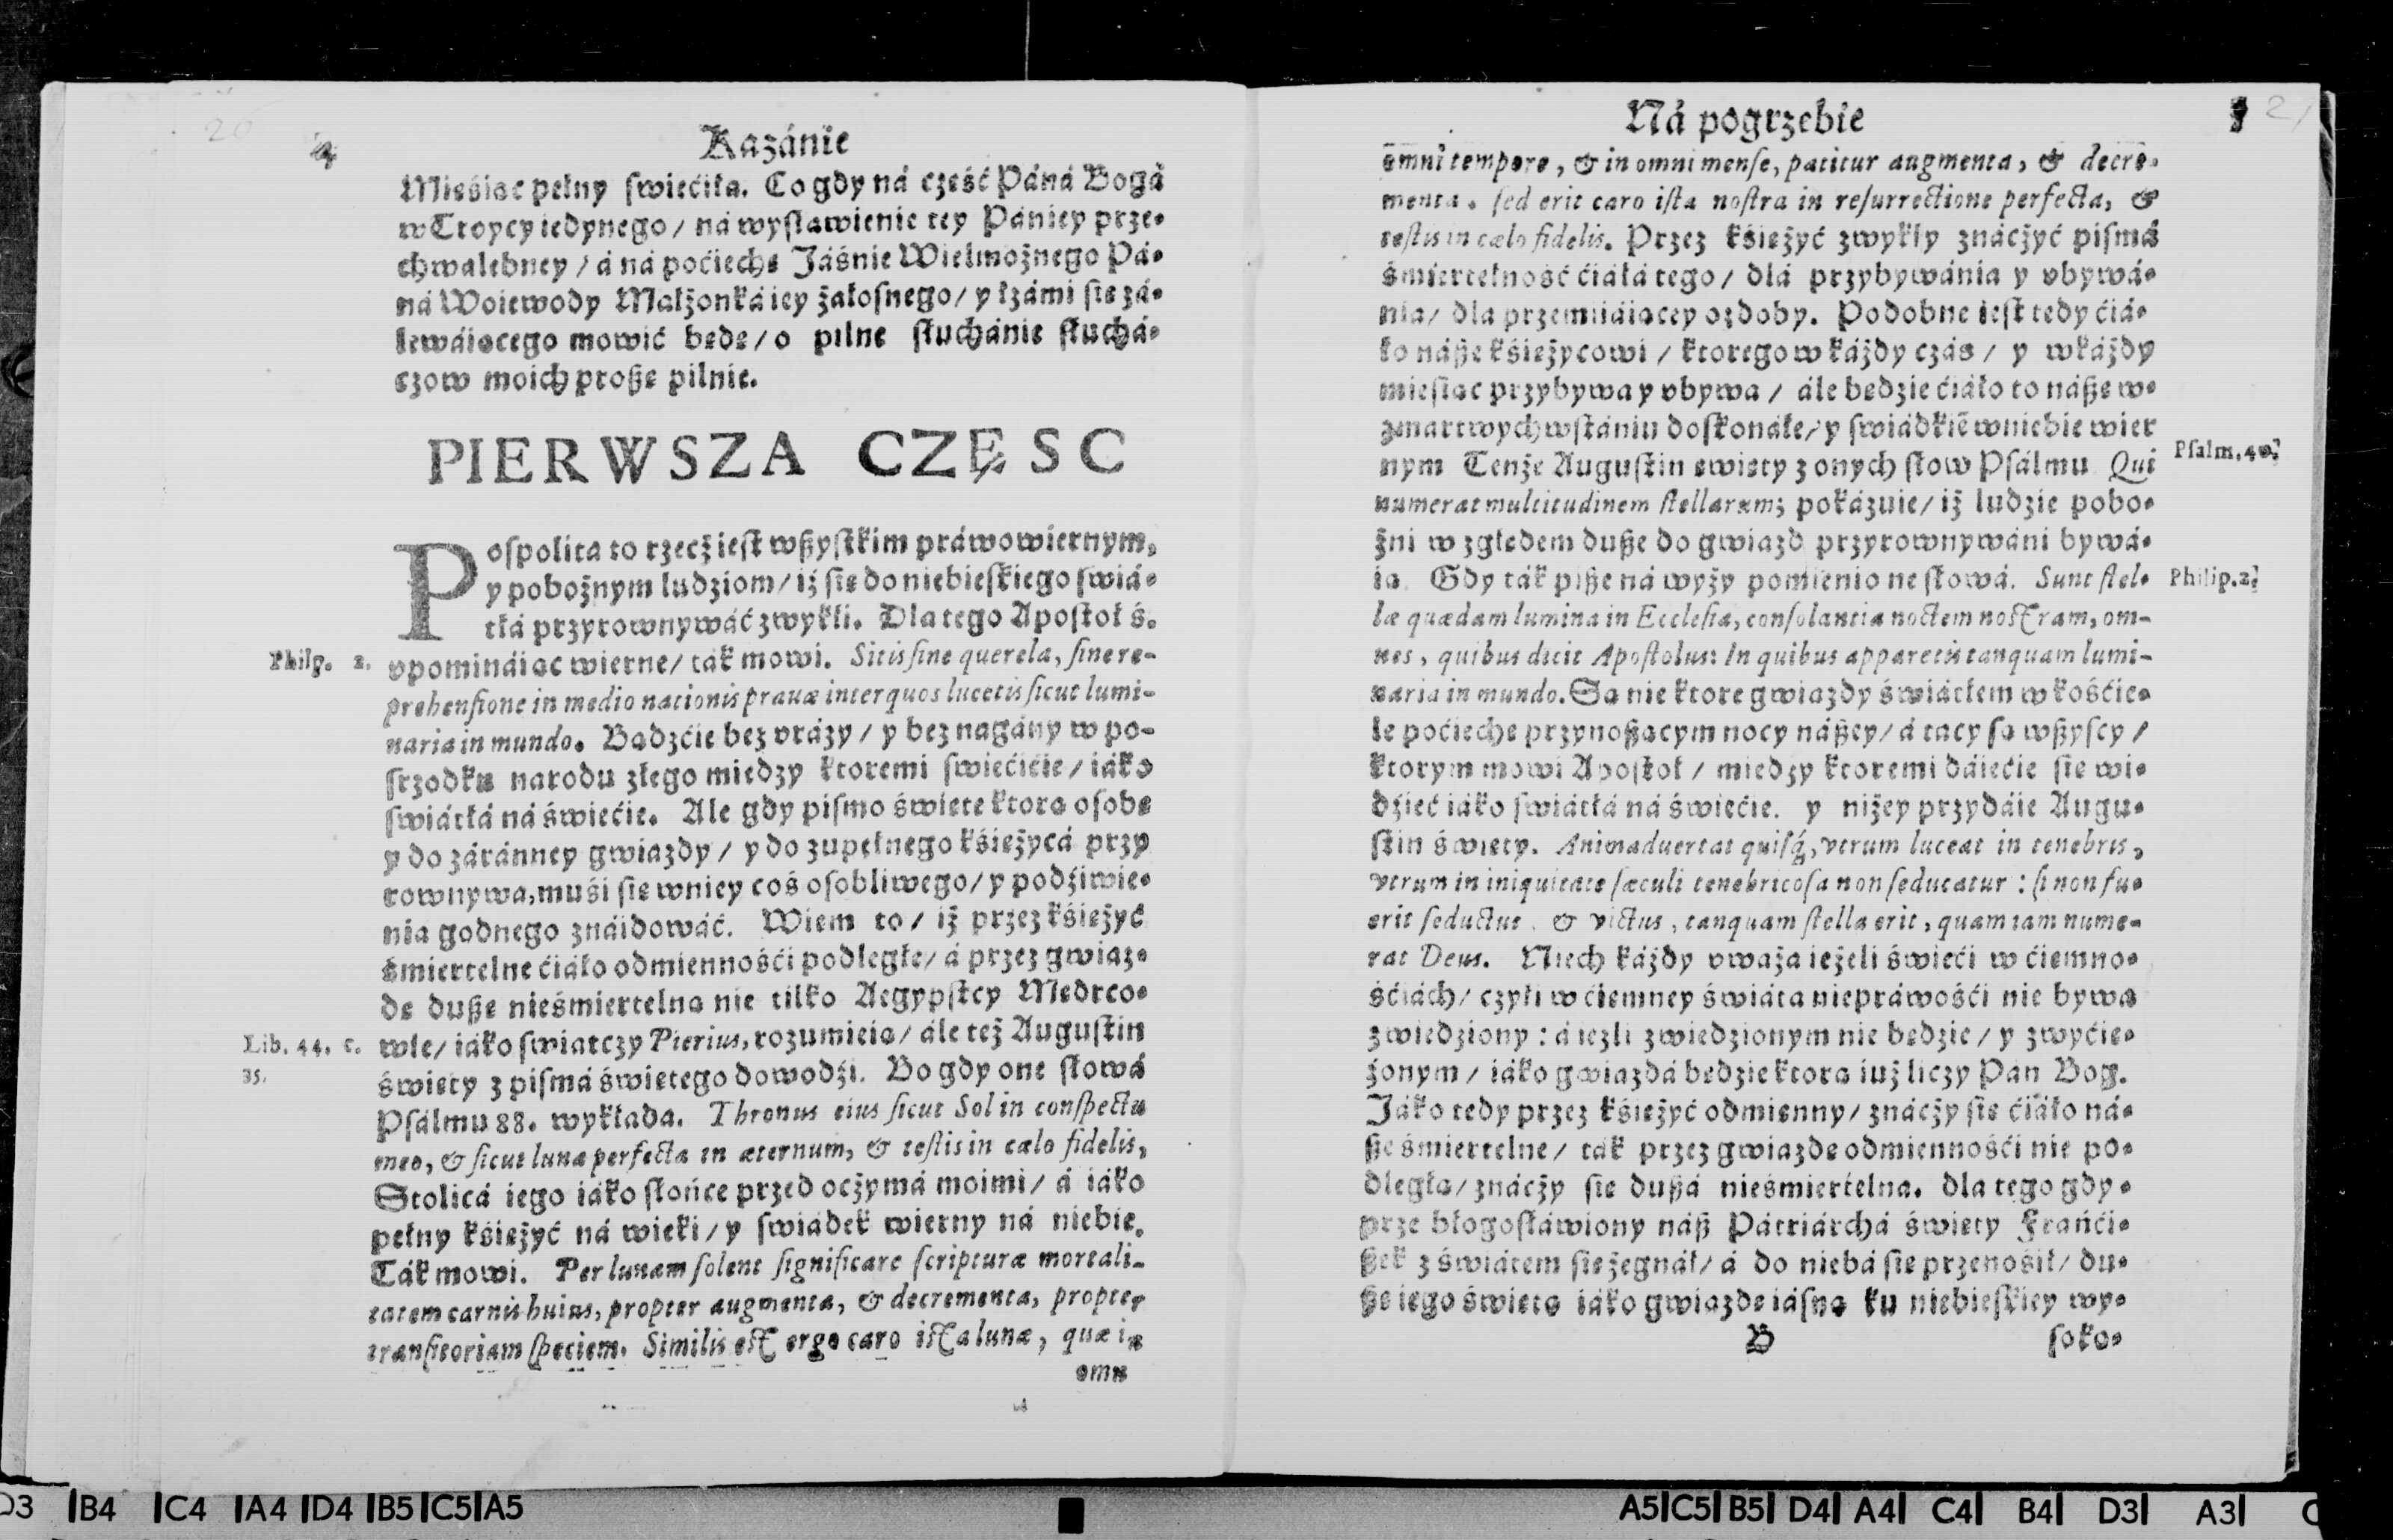 20
Kazánie
Mieśiąc pełny ſwiećiła. Co gdy ná cześć Páná Bogá
w Troycy iedynego/ ná wyſławienie tey Pániey prze-
chwalebney/ á ná poćiechę Jáśnie Wielmożnego Pá-
ná Woiewody Małżonká iey żałoſnego/ y łzámi ſię zá-
lewáiącego mowić będę/ o pilne ſłuchánie ſłuchá-
czow moich proßę pilnie.
PIERWSZA CZĘSC
Poſpolita to rzecż ieſt wßyſtkim práwowiernym,
y pobożnym ludziom/ iż ſię do niebieſkiego ſwiá-
tłá przyrownywáć zwykli. Dla tego Apoſtoł ś.
Philp. 2. vpomináiąc wierne/ ták mowi. Sitis ſine querela, ſine re-
prehenſione in medio nationis prauæ inter quos lucetis ſicut lumi-
naria in mundo. Bądzćie bez vrázy/ y bez nagány w po-
ſrzodku narodu złego miedzy ktoremi ſwiećićie/ iáko
ſwiátłá ná świećie. Ale gdy piſmo święte ktorą oſobę
y do záránney gwiazdy/ y do zupełnego kśiężycá przy
rownywa, muśi ſię w niey coś oſobliwego/ y podźiwie-
nia godnego znáidowáć. Wiem to/ iż przez kśiężyć
śmiertelne ćiáło odmiennośći podległe/ á przez gwiaz-
dę dußę nieśmiertelną nie tilko Aegypſtcy Mędrco-
Lib. 44. c. wie/ iáko ſwiatczy Pierius, rozumieią/ ále też Auguſtin
35. święty z piſmá świętego dowodźi. Bo gdy one ſłowá
Pſálmu 88. wykłada. Thronus eius ſicut Sol in conſpectu
meo, & ſicut luna perfecta in æternum, & teſtis in cælo fidelis,
Stolicá iego iáko ſłońce przed ocżymá moimi/ á iáko
pełny kśiężyć ná wieki/ y ſwiádek wierny ná niebie.
Ták mowi. Per lunam ſolent ſignificare ſcripturæ mortali-
tatem carnis huius, propter augmenta, & decrementa, propter
tranſitoriam ſpeciem. Similis eſt ergo caro iſta lunæ, quæ in
omn
21
Ná pogrzebie
omni tempore, & in omni menſe, patitur augmenta, & decre-
menta. ſed erit caro iſta noſtra in reſurrectione perfecta, &
teſtis in cælo fidelis. Przez kśiężyć zwykły znácżyć piſmá
śmiertelność ćiáłá tego/ dlá przybywánia y vbywá-
nia/ dla przemiiáiącey ozdoby. Podobne ieſt tedy ćiá-
ło náße kśiężycowi/ ktorego w káżdy czás/ y w káżdy
mieſiąc przybywa y vbywa/ ále będzie ćiáło to náße w-
zmartwychwſtániu doſkonáłe/ y ſwiádkiē w niebie wier
nym Tenże Auguſtin święty z onych ſłow Pſálmu Qui Pſalm. 40.
numerat multitudinem ſtellarum; pokázuie/ iż ludzie pobo-
żni w zględem duße do gwiazd przyrownywáni bywá-
ią. Gdy ták piße ná wyży pomienione ſłowá. Sunt ſtel- Philip. 2.
læ quædam lumina in Eccleſia, conſolantia noctem noſtram, om-
nes, quibus dicit Apoſtolus: In quibus apparetis tanquam lumi-
naria in mundo. Są nie ktore gwiazdy świátłem w kośćie-
le poćiechę przynoßącym nocy náßey/ á tacy ſą wßyſcy/
ktorym mowi Apoſtoł/ miedzy ktoremi dáiećie ſię wi-
dźieć iáko ſwiátłá ná świećie. y niżey przydáie Augu-
ſtin święty. Animaduertat quiſq́, vtrum luceat in tenebris,
vtrum in iniquitate ſæculi tenebricoſa non ſeducatur: ſi non fu-
erit ſeductus, & victus, tanquam ſtella erit, quam iam nume-
rat Deus. Niech káżdy vważa ieżeli świeći w ćiemno-
śćiách/ czyli w ćiemney świáta niepráwośći nie bywa
zwiedziony: á ieżli zwiedzionym nie będzie/ y zwyćię-
żonym/ iáko gwiazdá będzie ktorą iuż liczy Pan Bog.
Jáko tedy przez kśiężyć odmienny/ znácży ſię ćiáło ná-
ße śmiertelne/ ták przez gwiazdę odmiennośći nie po-
dległą/ znácży ſię dußá nieśmiertelna. dla tego gdy-
prze błogoſłáwiony náß Pátriárchá święty Fráńći-
ßek z świátem ſię żegnał/ á do niebá ſię przenośił/ du-
ßę iego świętą iáko gwiazdę iáſną ku niebieſkiey wy-
B ſoko-
D3 B4 C4 A4 D4 B5 C5 A5
A5 C5 B5 D4 A4 C4 B4 D3 A3